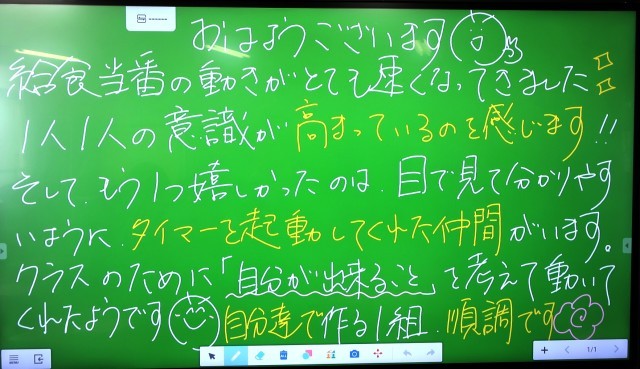 おはようございます
給食当番の動きがとても速くなってきました
1人1人の意識が高まっているのを感じます!!
そして、もう1つ嬉しかったのは、目で見て分かりやす
いように、タイマーを起動してくれた仲間がいます。
クラスのために「自分が出来ること」を考えて動いて
くれたようです 自分達で作る1組、順調です
1/1